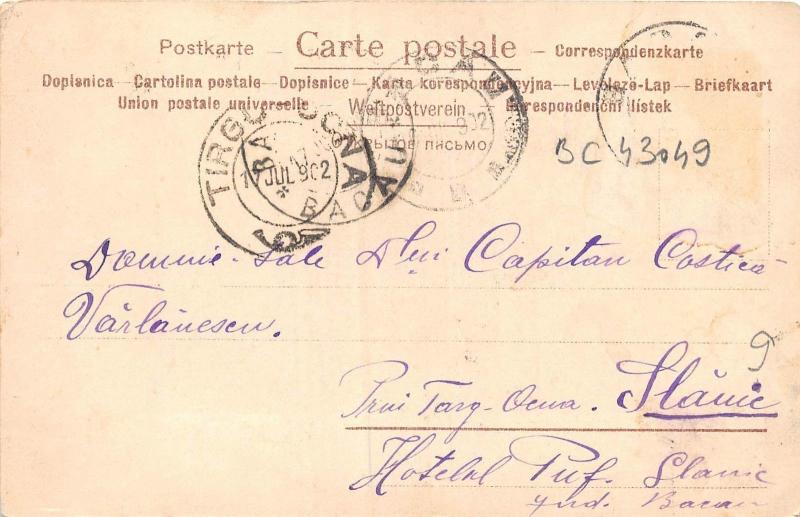 Postkarte – Carte postale – Correspondenzkarte
Dopisnica – Cartolina postale – Dopisnice – Karta korespondencyjna – Levelező-Lap – Briefkaart
Union postale universelle – Weltpostverein – Korespondenční lístek
ОТКРЫТОЕ ПИСЬМО
TIRGU OCNA
BACAU
17 JUL 902
BACAU
902
BC 43049
Domnie-sale Dlui Capitan Costică
Vârlănescu.
9
Prin Targ-Ocna. Slănic
Hotelul Puf. Slanic
jud. Bacau